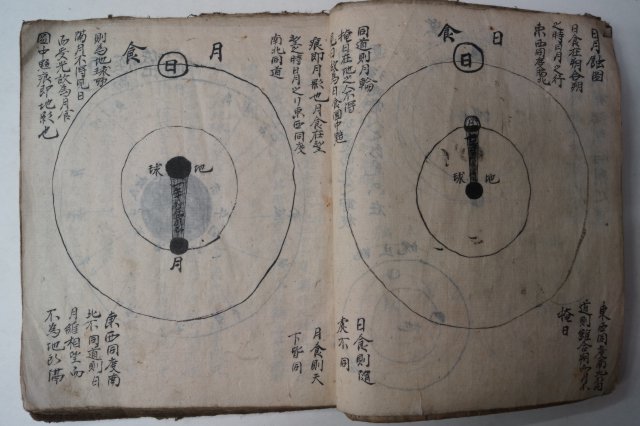 日月蝕圖
日食在朔合朔
之時日月之行
東西同度南北
同道則月輪
掩日在地之人不得
見日故為日食圖中黯
痕即月影也月食在望
望之時日月之行東西同度
南北同道
日食
日
地球
東西同度南北不同
道則雖合朔而月不
掩日
日食則隨
處不同
月食則天
下皆同
月食
日
地球
月
則為地球所
隔月不得見日
而受光故為月食
圖中黯痕即地影也
東西同度南
北不同道則日
月雖相望而
不為地所隔